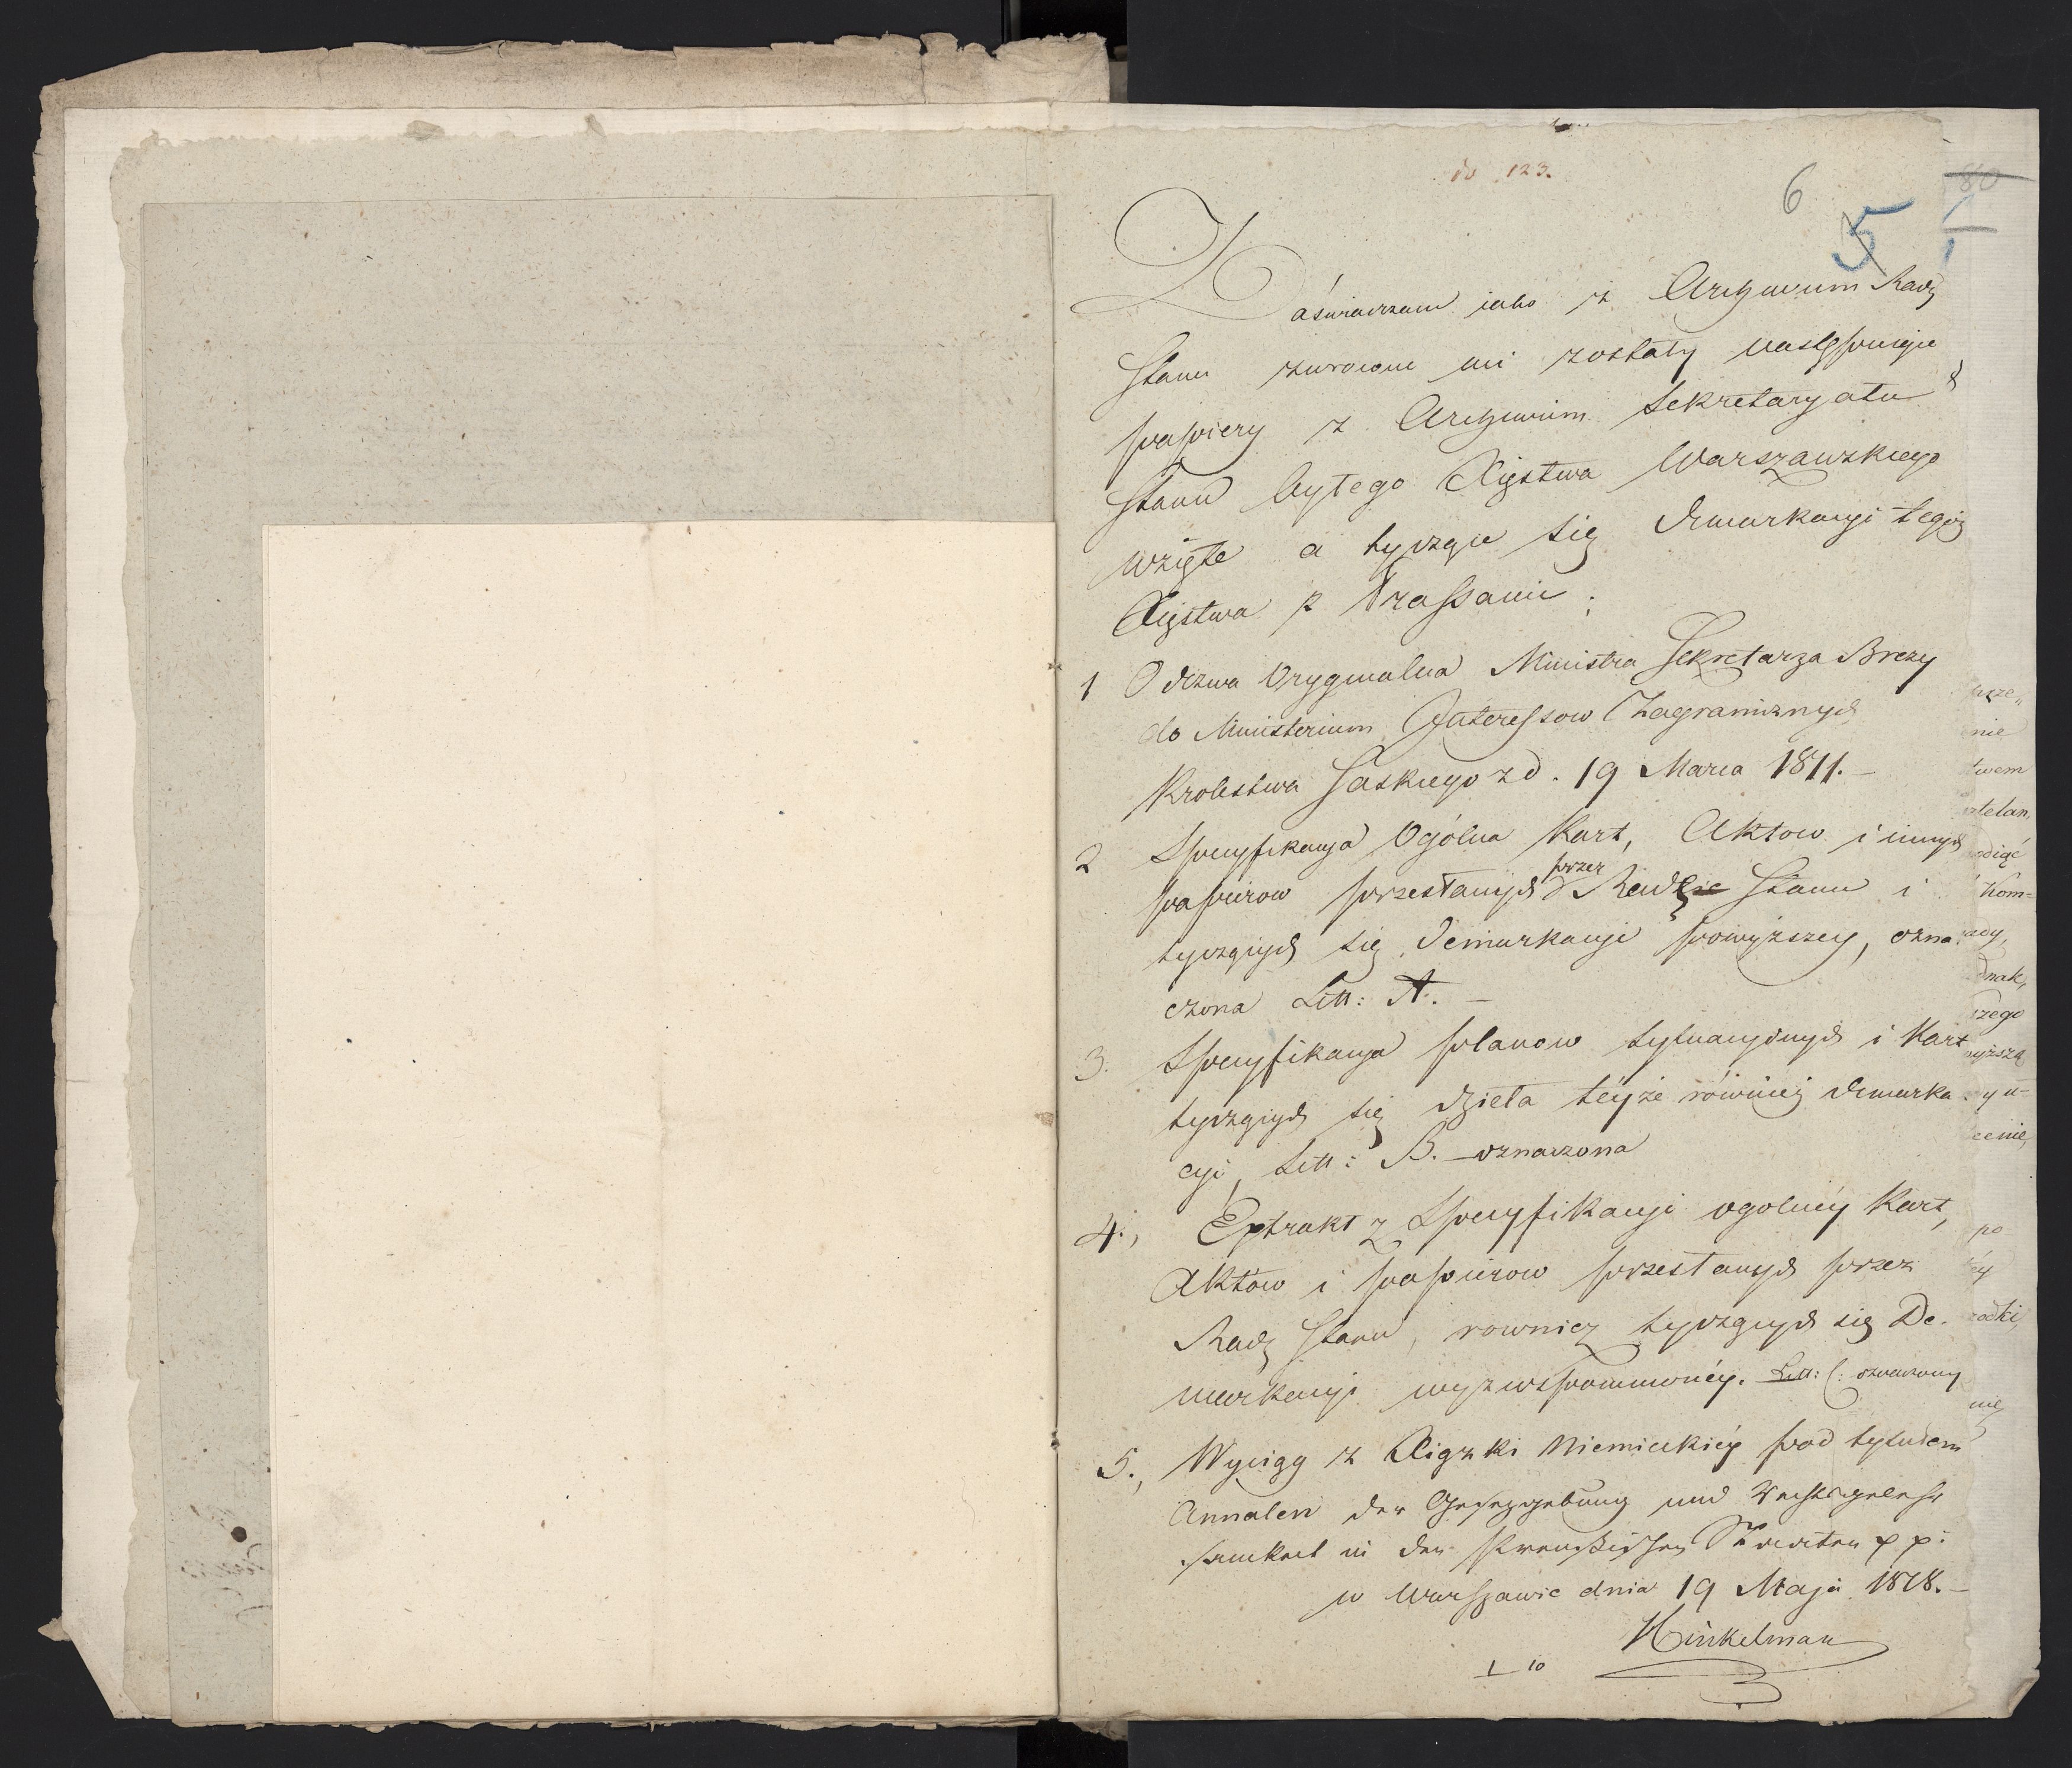 do 123.
6
5
80
Zaświadczam jako iż Archiwum Rady
Stanu zwrócone mi zostały następujące
papiery z Archiwum Sekretaryatu
Stanu byłego Xięstwa Warszawskiego
wzięte a tyczące się Demarkacyi tegoż
Xięstwa z Prussami:
1 Odezwa Oryginalna Ministra Sekretarza Brezy
do Ministerium Interessow Zagranicznych
Krolestwa Saskiego z d. 19 Marca 1811. –
2 Specyfikacya Ogólna Kart, Aktow i innych
papierow przesłanych przez Radę Stanu i
tyczących się Demarkacyi powyższey, ozna
czona Litt: A. –
3. Specyfikacya planow sytuacyinych i Kart
tyczących się dzieła teyże rówineż Demarka
cyi, Litt: B. – oznaczona
4., Extrakt z Specyfikacyi ogolney Kart,
Aktów i papierow przesłanych przez
Radę Stanu, rownież tyczących się De-
markacyi wyżwspomnioney. Litt: C: oznaczony
5., Wyciąg z Xiążki Niemieckiéy pod tytułem
Annalen der Gesezgebung und Rechtsgelehr
samkeit in den Preussischen Staaten p p:
w Warszawie dnia 19 Maja 1818. –
Hinkelman
1 10
prze„
nie
twem
rtelan,
odiąć
Kom=
dnak,
szego
wyższą
y u=
cenie,
po
éy
rodki,